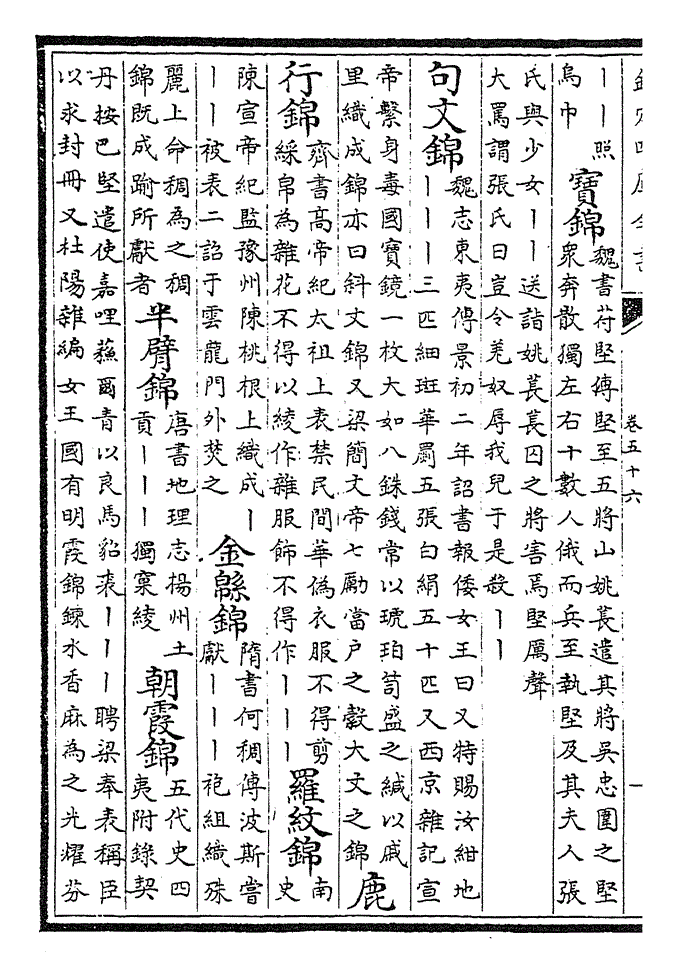 欽定四庫全書
卷五十六
一
丨丨照
烏巾
寶錦
魏書苻堅傳堅至五將山姚萇遣其將吳忠圍之堅
衆奔散獨左右十數人俄而兵至執堅及其夫人張
氏與少女丨丨送詣姚萇萇囚之將害焉堅厲聲
大罵謂張氏曰豈令羌奴辱我兒于是殺丨丨
句文錦
魏志東夷傳景初二年詔書報倭女王曰又特賜汝紺地
丨丨丨三匹細斑華罽五張白絹五十匹又西京雜記宣
帝繫身毒國寶鏡一枚大如八銖錢常以琥珀笥盛之緘以戚
里織成錦亦曰斜文錦又梁簡文帝七勵當户之縠大文之錦
鹿
行錦
齊書高帝紀太祖上表禁民間華偽衣服不得剪
綵帛為雜花不得以綾作雜服飾不得作丨丨丨
羅紋錦
南
史
陳宣帝紀監豫州陳桃根上織成丨
丨丨被表二詔于雲龍門外焚之
金緜錦
隋書何稠傳波斯嘗
獻丨丨丨袍組織殊
麗上命稠為之稠
錦既成踰所獻者
半臂錦
唐書地理志揚州土
貢丨丨丨獨窠綾
朝霞錦
五代史四
夷附錄契
丹按巴堅遣使嘉哩蘓爾青以良馬貂裘丨丨丨聘梁奉表稱臣
以求封冊又杜陽雜編女王國有明霞錦鍊水香麻為之光耀芬